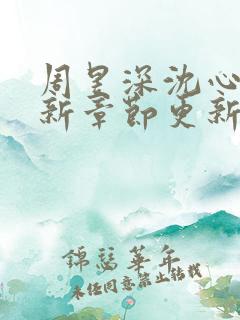 周昱深沈心
新章节更新
錦瑟華年
未经同意禁止转载